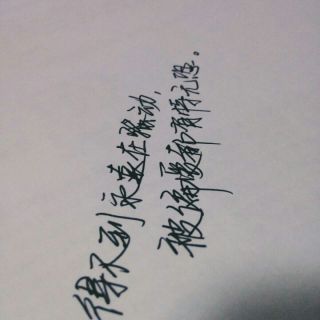 得不到永远在骚动，
被偏爱都有恃无恐。